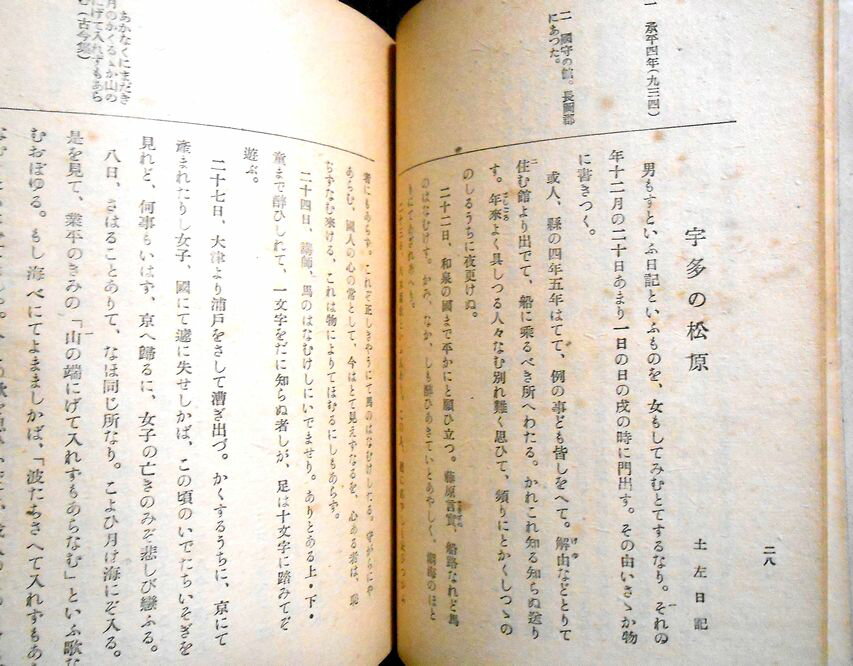 二八
宇多の松原
土左日記
男もすといふ日記といふものを、女もしてみむとてするなり。それの
年十二月の二十日あまり一日の日の戌の時に門出す。その由いさゝか物
に書きつく。
或人、縣の四年五年はてて、例の事ども皆しをへて。解由などとりて
住む館より出でて、船に乘るべき所へわたる。かれこれ知る知らぬ送り
す。年來よく具しつる人々なむ別れ難く思ひて、頻りにとかくしつゝの
のしるうちに夜更けぬ。
二十二日、和泉の國まで平かにと願ひ立つ。藤原言實、船路なれど馬
のはなむけす。かみ、なか、しも醉ひあきていとあやしく。潮海のほと
りにてあざれ所へり。
一 承平四年(九三四)
二 國守の館。長岡郡
にあつた。
者にもあらず。これぞ正しきやうにて馬のはなむけしたる。守がらにや
あらむ、國人の心の常として、今はとて見えずなるを、心ある者は、恥
ちずなむ來ける、これは物によりてほむるにしもあらず。
二十四日、講師、馬のはなむけしにいでませり。ありとある上・下・
童まで醉ひしれて、一文字をだに知らぬ者しが、足は十文字に踏みてぞ
遊ぶ。
二十七日、大津より浦戸をさして漕ぎ出づ。かくするうちに、京にて
產まれたりし女子、國にて遽に失せしかば、この頃のいでたちいそぎを
見れど、何事もいはず、京へ歸るに、女子の亡きのみぞ悲しび戀ふる。
八日、さはることありて、なほ同じ所なり。こよひ月は海にぞ入る。
是を見て、業平のきみの「山の端にげて入れずもあらなむ」といふ歌な
むおぼゆる。もし海べにてよまましかば、「波たちさへて入れずもあ
あかなくにまだき
月のかくるゝか山の
にげて入れずもあら
む(古今集)